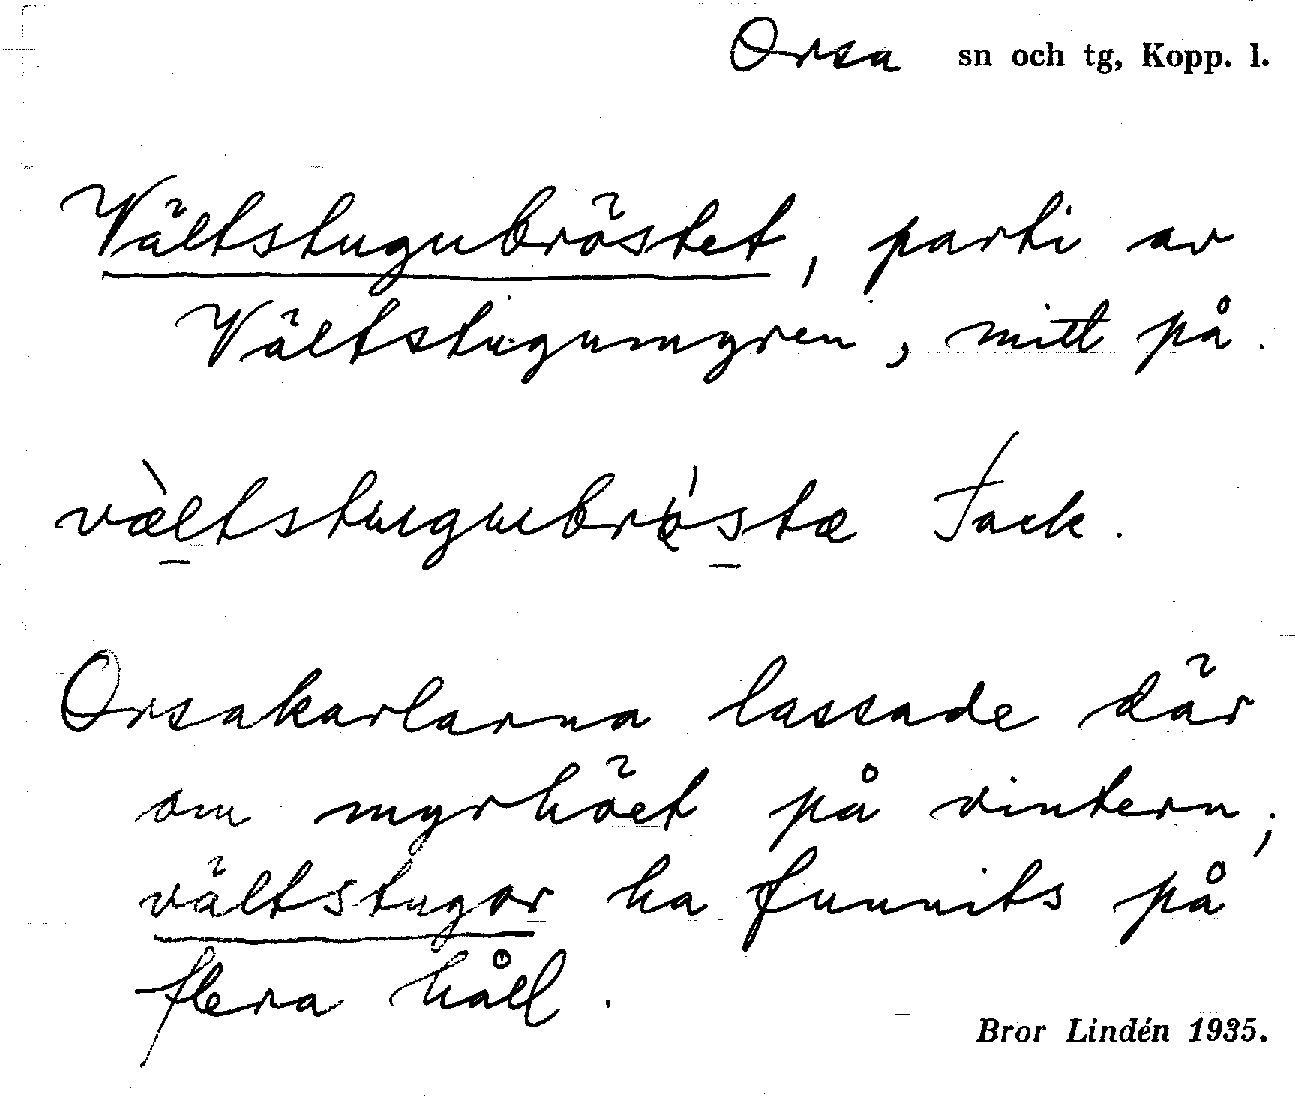 Orsa sn och tg, Kopp. l.
Vältstugubröstet, parti av
Vältstugumyren, mitt på.
Fack.
Orsakarlarna lassade där
om myrhöet på vintern;
vältstugor ha funnits på
flera håll.
Bror Lindén 1935.